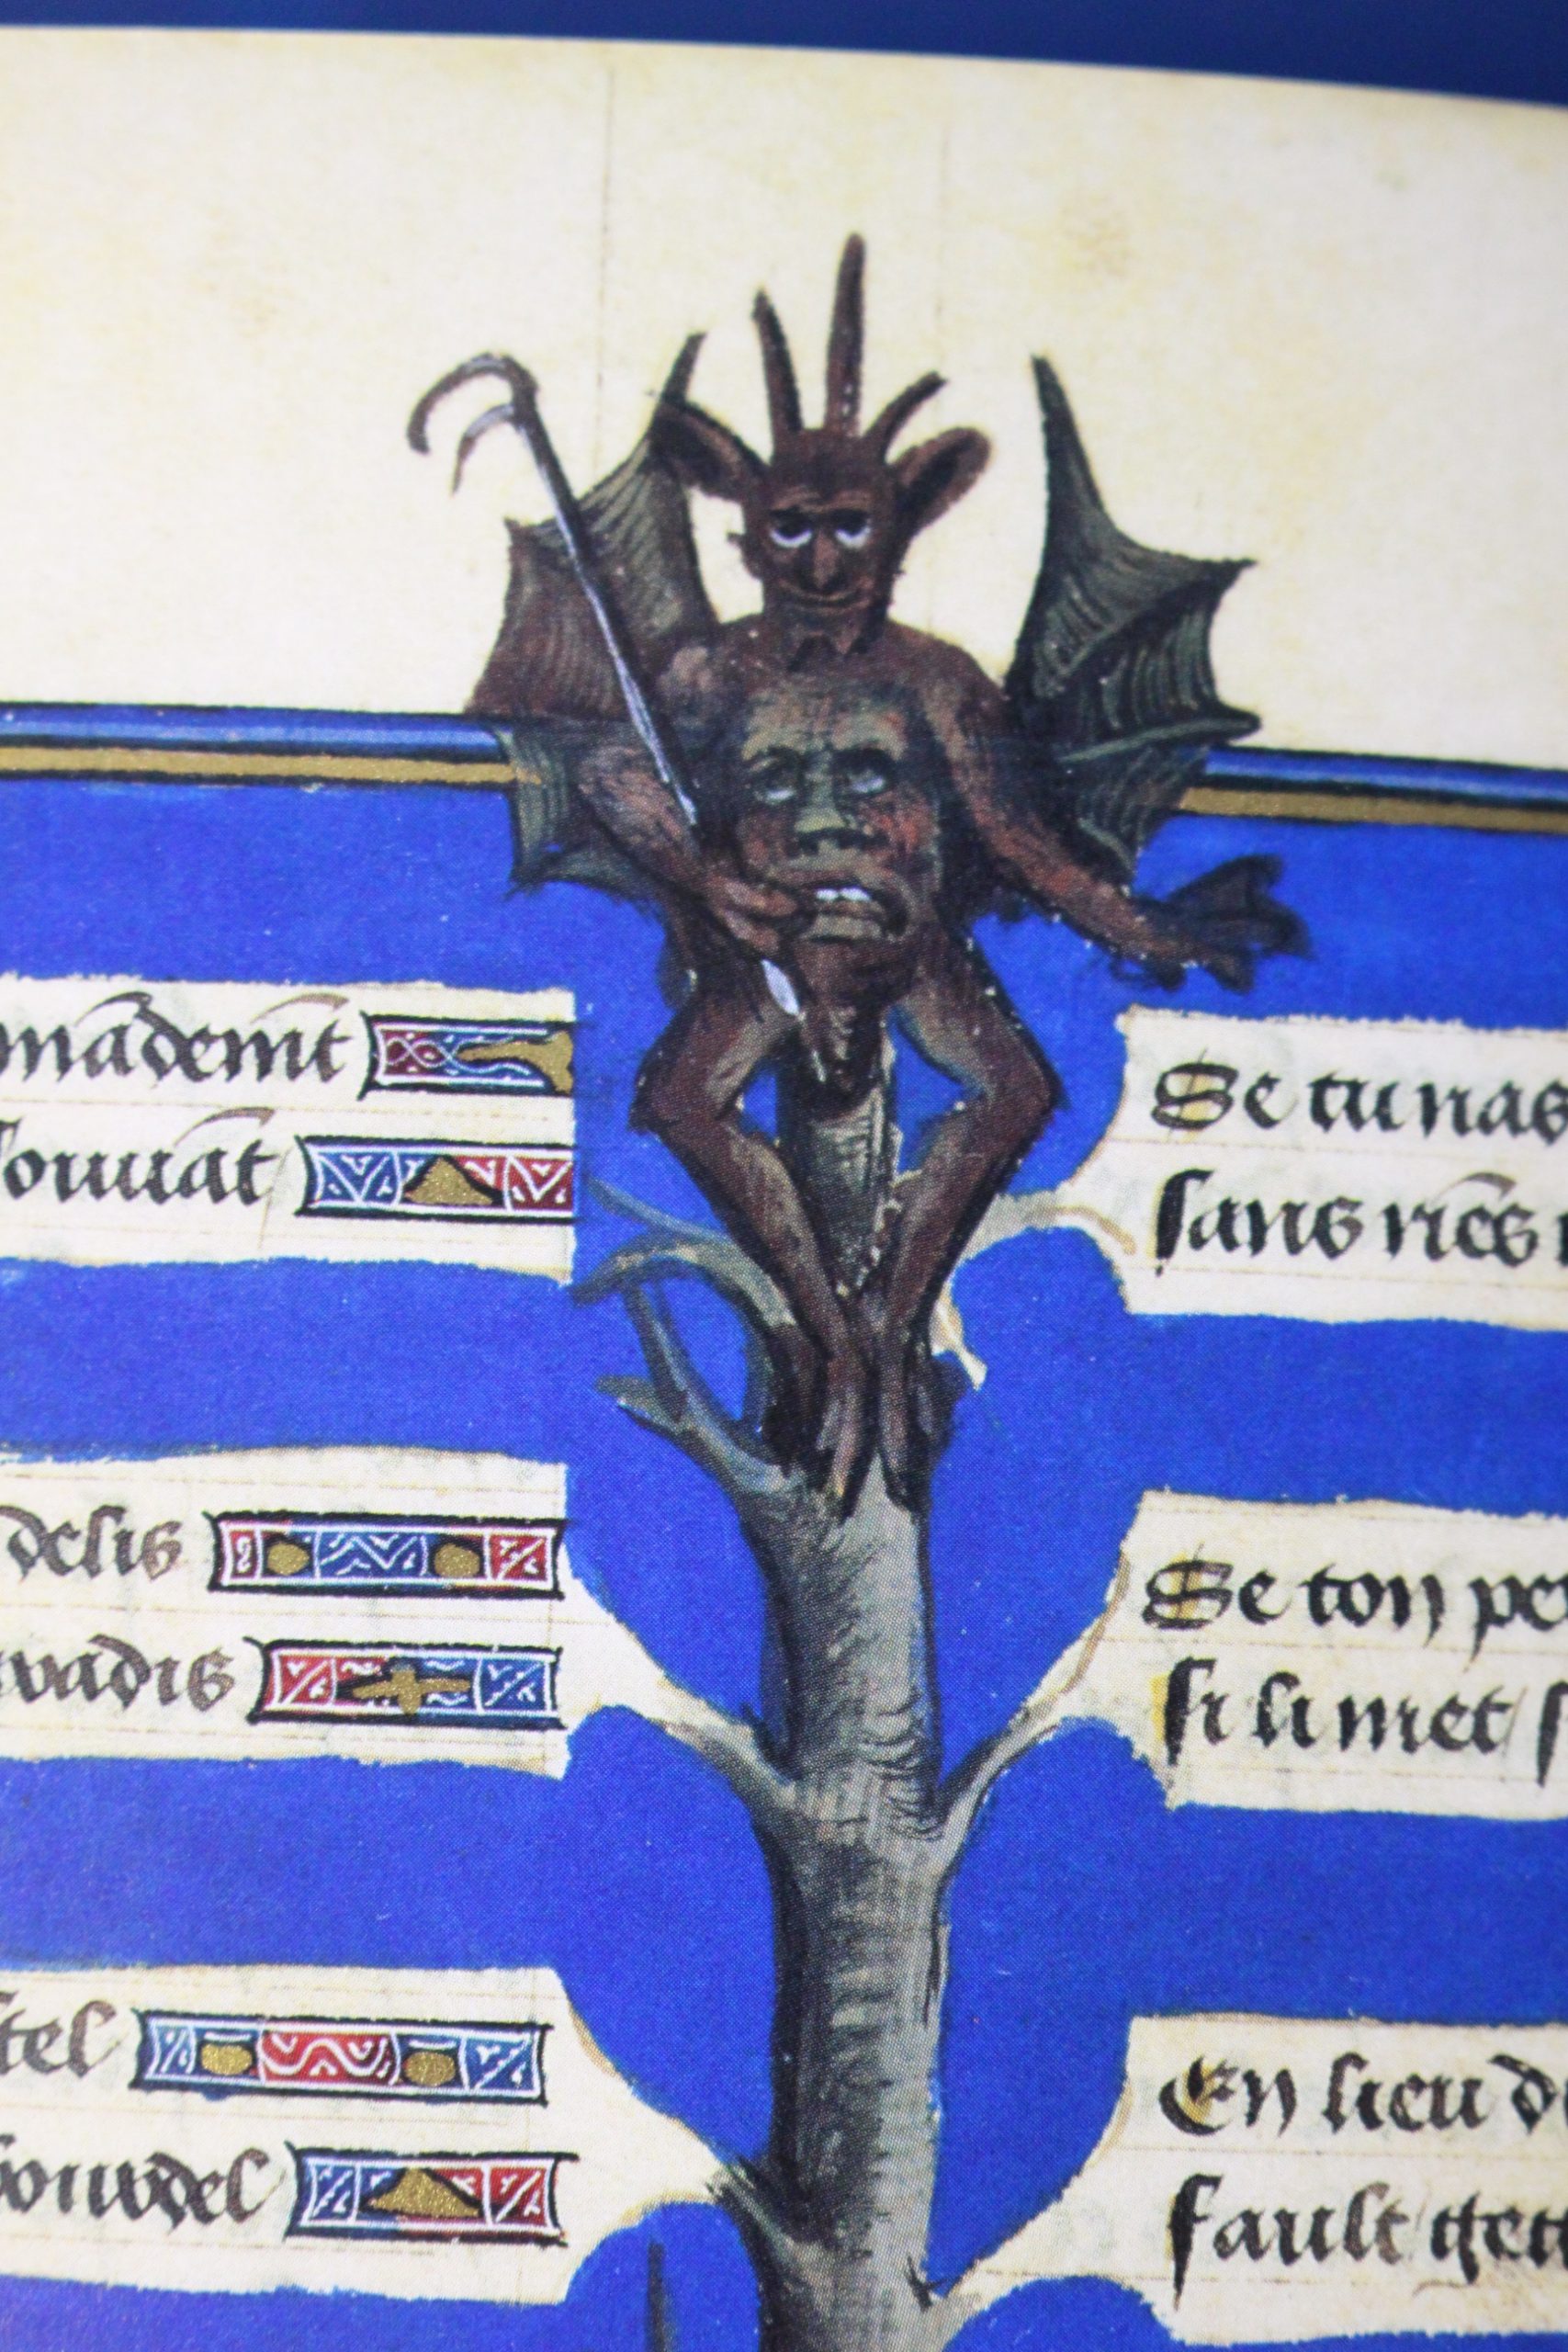 mādemēt
souuāt
delis
wadis
tel
pouvdel
Se tu nas
sans riēs
Se ton pe
si li met
En lieu d
fault get